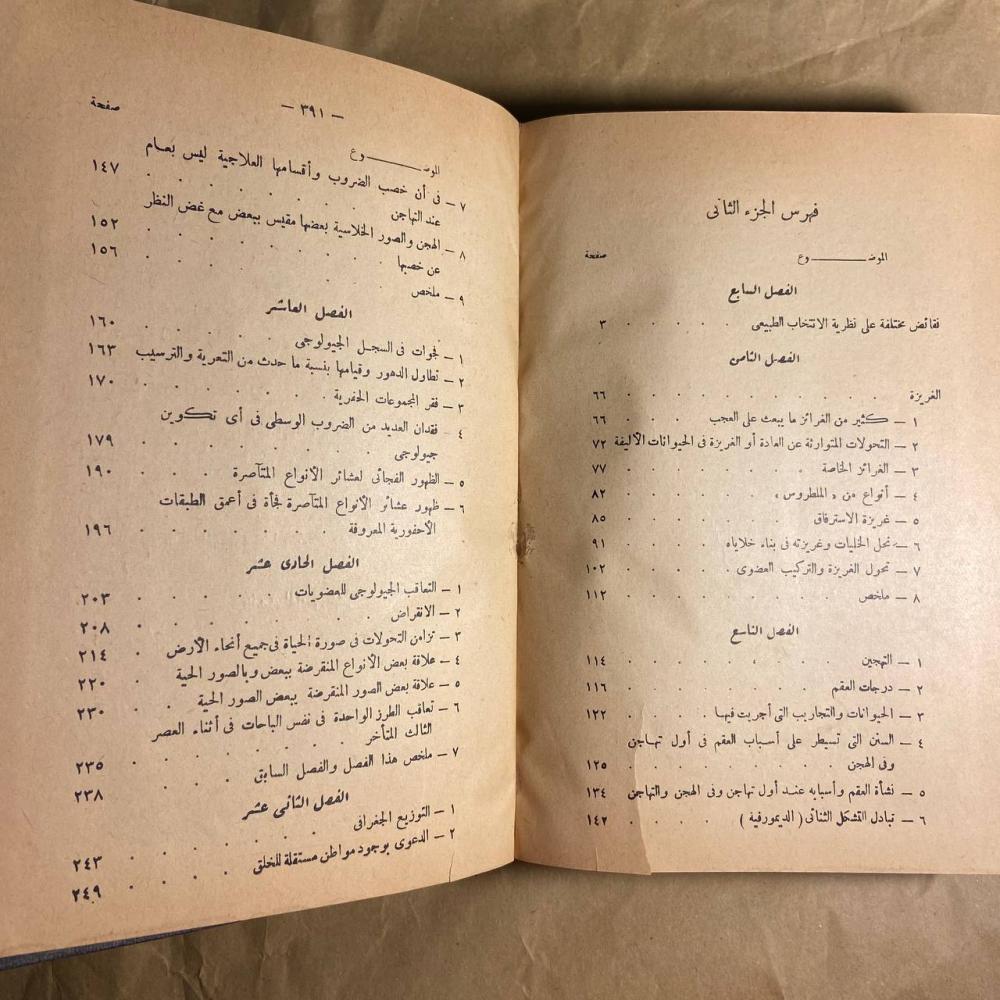 فهرس الجزء الثانى
الموضــــوع صفحة
الفصل السابع
نقائض مختلفة على نظرية الانتخاب الطبيعى . . . . . ٣
الفصل الثامن
الغريزة . . . . . . . . . . ٦٦
١ – كثير من الغرائز ما يبعث على العجب . . . . ٦٦
٢ – التحولات المتوارثة عن العادة أو الغريزة فى الحيوانات الأليفة ٧٢
٣ – الغرائز الخاصة . . . . . . . ٧٧
٤ – أنواع من « الملطروس » . . . . . ٨٢
٥ – غريزة الاسترقاق . . . . . . ٨٥
٦ – نحل الخليات وغريزته فى بناء خلاياه . . . . ٩١
٧ – تحول الغريزة والتركيب العضوى . . . . . ١٠٢
٨ – ملخص . . . . . . . . ١١٢
الفصل التاسع
١ – التهجين . . . . . . . . ١١٤
٢ – درجات العقم . . . . . . . ١١٦
٣ – الحيوانات والتجاريب التى أجريت فيها . . . . ١٢٢
٤ – السنن التى تسيطر على أسباب العقم فى أول تهاجن
وفى الهجن . . . . . . . . ١٢٥
٥ – نشأة العقم وأسبابه عند أول تهاجن وفى الهجن والتهاجن ١٣٤
٦ – تبادل التشكل الثنائى ( الديمورفية ) . . . . . ١٤٢
– ٣٩١ –
الموضــــوع صفحة
٧ – فى أن خصب الضروب وأقسامها العلاجية ليس بعام
عند التهاجن . . . . . . . ١٤٧
٨ – الهجن والصور الخلاسية بعضها مقيس ببعض مع غض النظر
عن خصبها . . . . . . . ١٥٢
٩ – ملخص . . . . . . . ١٥٦
الفصل العاشر
١ – فجوات فى السجل الجيولوجى . . . . . ١٦٠
٢ – تطاول الدهور وقيامها بنسبة ما حدث من التعرية والترسيب ١٦٣
٣ – فقر المجموعات الحفرية . . . . . . ١٧٠
٤ – فقدان العديد من الضروب الوسطى فى أى تكوين
جيولوجى . . . . . . . ١٧٩
٥ – الظهور الفجائى لعشائر الأنواع المتآصرة . . . ١٩٠
٦ – ظهور عشائر الأنواع المتآصرة فجأة فى أعمق الطبقات
الأحفورية المعروفة . . . . . . ١٩٦
الفصل الحادى عشر
١ – التعاقب الجيولوجى للعضويات . . . . . ٢٠٣
٢ – الانقراض . . . . . . . ٢٠٨
٣ – تزامن التحولات فى صورة الحياة فى جميع أنحاء الأرض ٢١٤
٤ – علاقة بعض الأنواع المنقرضة ببعض وبالصور الحية ٢٢٠
٥ – علاقة بعض الصور المنقرضة ببعض الصور الحية . ٢٣٠
٦ – تعاقب الطرز الواحدة فى نفس الباحات فى أثناء العصر
الثالث المتأخر . . . . . . ٢٣٥
٧ – ملخص هذا الفصل والفصل السابق . . . ٢٣٨
الفصل الثانى عشر
١ – التوزيع الجغرافى . . . . . . ٢٤٣
٢ – الدعوى بوجود مواطن مستقلة للخلق . . . ٢٤٩